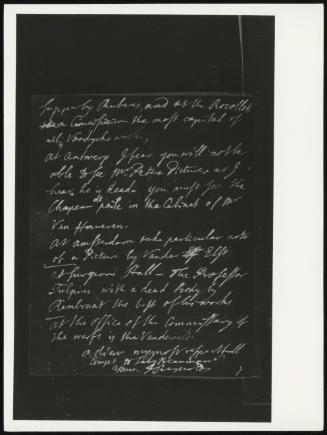 Supper by Rubens, and at the Recollets
a Crucifixion the most capital of
all Vandycks works,
At Antwerp I fear you will not be
able to see Mr Peters Pictures as I
hear he is dead. you must see the
Chapeau de paile in the Cabinet of Mr
Van Haveren.
At Amsterdam take particular note
of a Picture by Vander Elst
at Surgeons Hall – The Professor
Tulpius with a dead Body by
Rembrant the best of his works
at the office of the Commissary of
the Wert is the Vanderveld
adieu my most respectfull
Compts to Lady Beaumont
yours J Reynolds